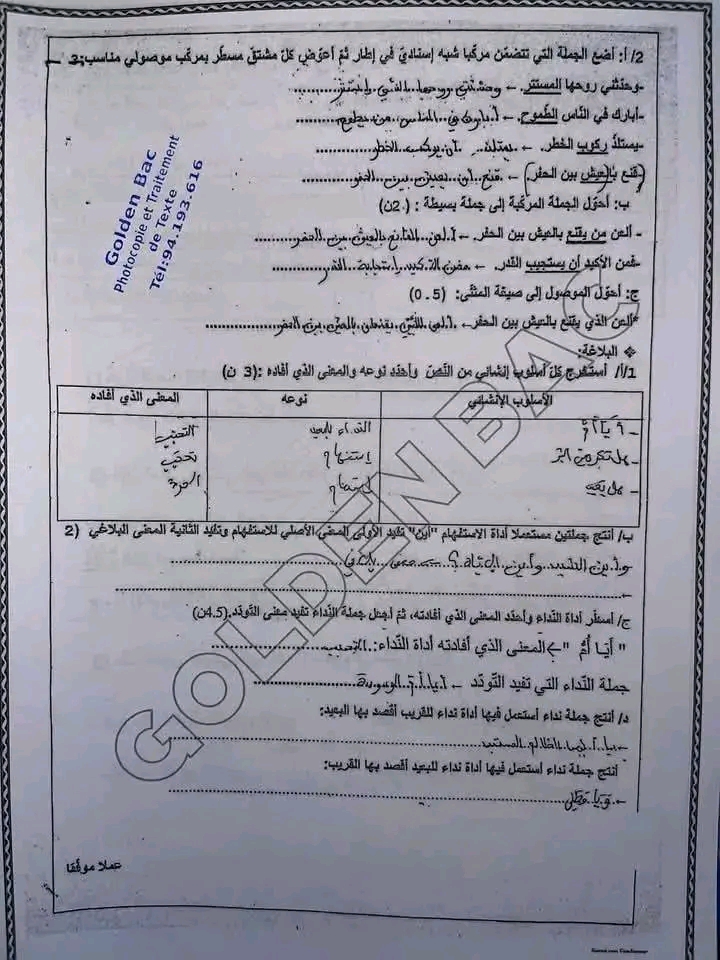 2/ أ: أضع الجملة التي تتضمّن مركّبا شبه إسناديّ في إطار ثمّ أعوّض كلّ مشتقّ مسطّر بمركّب موصولي مناسب:3
-وحدّثني روحها المستتر. ← وحدّثني روحها الذي استتر
-أبارك في النّاس الطّموح. ← أبارك في الناس من يطمح
-يستلذّ ركوب الخطر. ← يستلذ أن يركب الخطر
(قنع بالعيش بين الحفر.) ← قنع أن يعيش بين الحفر
ب: أحوّل الجملة المركّبة إلى جملة بسيطة : (2ن)
- ألعن من يقنع بالعيش بين الحفر. ← ألعن القانع بالعيش بين الحفر
-فمن الأكيد أن يستجيب القدر. ← فمن الأكيد استجابة القدر
ج: أحوّل الموصول إلى صيغة المثنّى: (0.5)
*ألعن الذي يقنع بالعيش بين الحفر← ألعن اللذين يقنعان بالعيش بين الحفر
❖ البلاغة:
1/أ/ أستخرج كلّ أسلوب إنشائي من النّصّ وأحدّد نوعه والمعنى الذي أفاده :(3 ن)
الأسلوب الإنشائي نوعه المعنى الذي أفاده
- أيا أمّ النداء للبعيد
- هل تكرهين البشر إستفهام
- هل يعيد
ب/ أنتج جملتين مستعملا أداة الاستفهام "أين" تفيد الأولى المعنى الأصلي للاستفهام وتفيد الثانية المعنى البلاغي (2
ج/ أسطّر أداة النّداء وأحدّد المعنى الذي أفادته، ثمّ أجعل جملة النّداء تفيد معنى التّودّد.(4.5ن)
" أيَا أمُّ " ← المعنى الذي أفادته أداة النّداء:
جملة النّداء التي تفيد التّودّد ←
د/ أنتج جملة نداء أستعمل فيها أداة نداء للقريب أقصد بها البعيد:
- يا أيها الظالم المستبد
أنتج جملة نداء استعمل فيها أداة نداء للبعيد أقصد بها القريب:
عملا موفّقا
Golden Bac
Photocopie et Traitement
de Texte
Tél:94.193.616
GOLDEN BAC